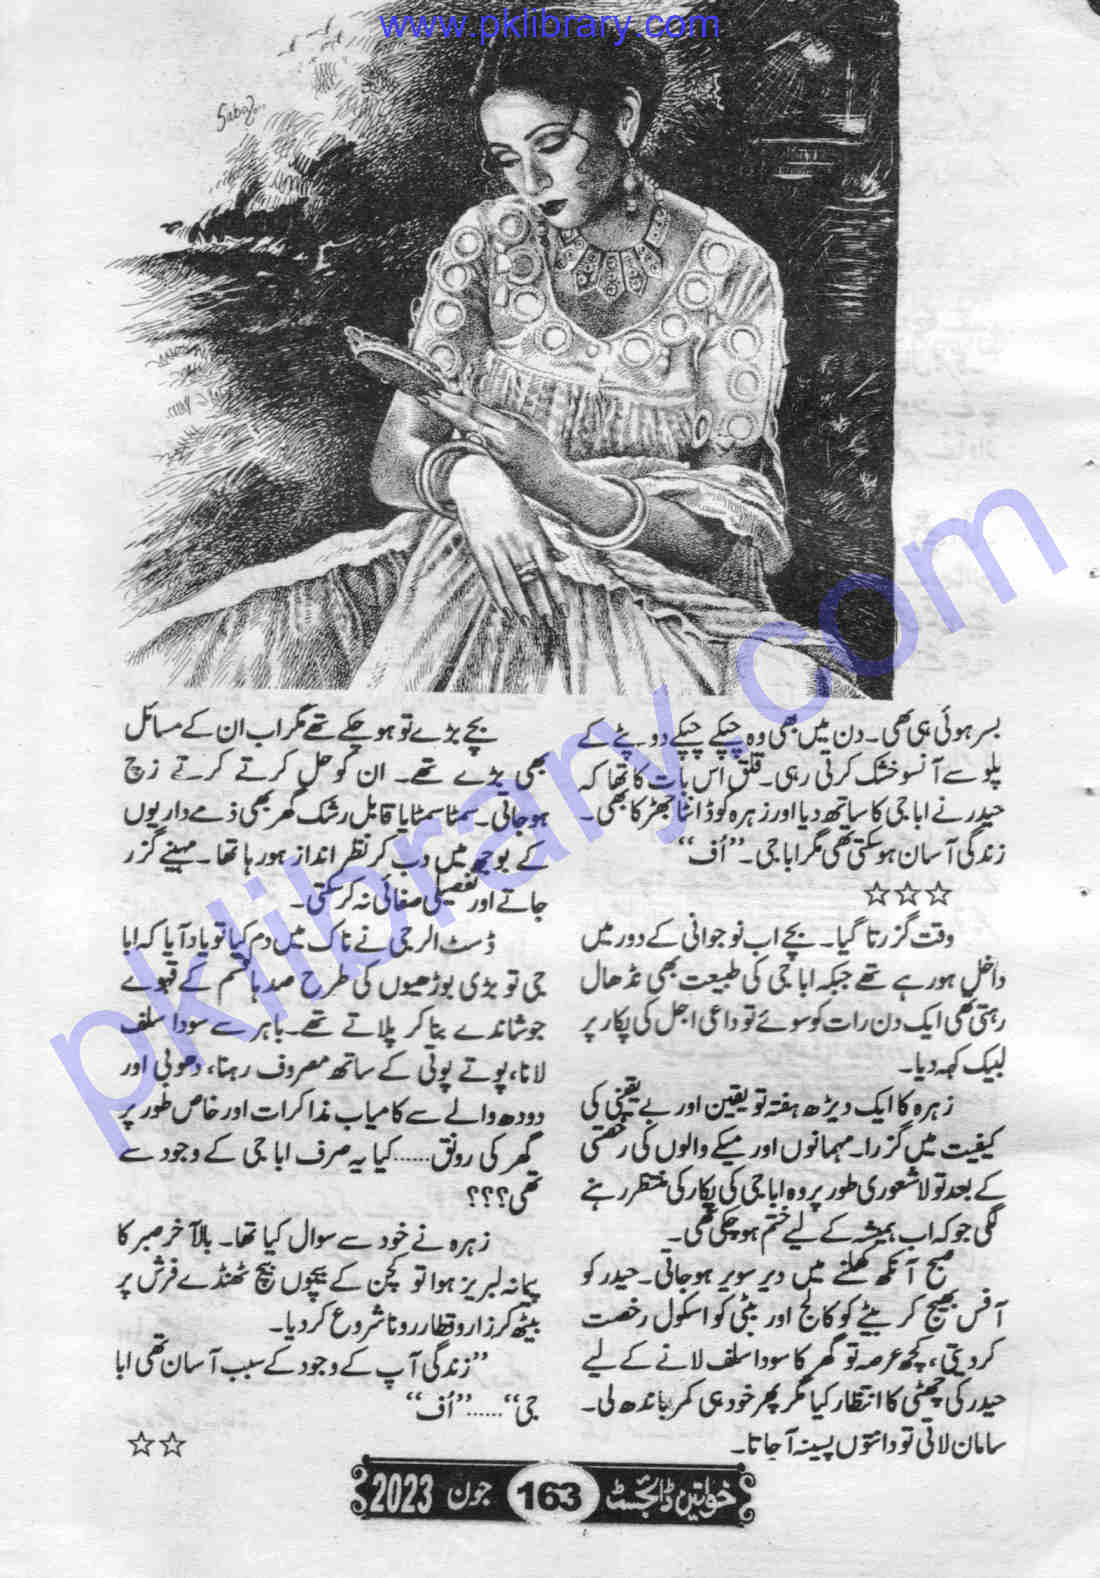 www.pklibrary.com
بسر ہوئی ہی تھی۔ دن میں بھی وہ چپکے چپکے دوپٹے کے
پلو سے آنسو خشک کرتی رہی۔ قلق اس بات کا تھا کہ
حیدر نے ابا جی کا ساتھ دیا اور زہرہ کو ڈانٹا جھڑکا بھی۔
زندگی آسان ہو سکتی تھی مگر ابا جی۔ ”اُف“
☆☆☆
وقت گزرتا گیا۔ بچے اب نوجوانی کے دور میں
داخل ہو رہے تھے جبکہ ابا جی کی طبیعت بھی نڈھال
رہتی تھی ایک دن رات کو سوئے تو داعی اجل کی پکار پر
لبیک کہہ دیا۔
زہرہ کا ایک ڈیڑھ ہفتہ تو یقین اور بے یقینی کی
کیفیت میں گزرا۔ مہمانوں اور میکے والوں کی رخصتی
کے بعد تو لاشعوری طور پر وہ ابا جی کی پکار کی منتظر رہنے
لگی جو کہ اب ہمیشہ کے لیے ختم ہو چکی تھی۔
صبح آنکھ کھلنے میں دیر سویر ہو جاتی۔ حیدر کو
آفس بھیج کر بیٹے کو کالج اور بیٹی کو اسکول رخصت
کر دیتی، کچھ عرصہ تو گھر کا سودا سلف لانے کے لیے
حیدر کی چھٹی کا انتظار کیا مگر پھر خود ہی کمر باندھ لی۔
سامان لاتی تو دانتوں پسینہ آ جاتا۔
بچے بڑے تو ہو چکے تھے مگر اب ان کے مسائل
بھی بڑے تھے۔ ان کو حل کرتے کرتے زچ
ہو جاتی۔ سمٹا سمٹایا قابل رشک گھر بھی ذمے داریوں
کے بوجھ میں دب کر نظر انداز ہو رہا تھا۔ مہینے گزر
جاتے اور تفصیلی صفائی نہ کر سکتی۔
ڈسٹ الرجی نے ناک میں دم کیا تو یاد آیا کہ ابا
جی تو بڑی بوڑھیوں کی طرح صدہا قسم کے قہوے
جوشاندے بنا کر پلاتے تھے۔ باہر سے سودا سلف
لانا، پوتے پوتی کے ساتھ مصروف رہنا، دھوبی اور
دودھ والے سے کامیاب مذاکرات اور خاص طور پر
گھر کی رونق...... کیا یہ صرف ابا جی کے وجود سے
تھی؟؟؟
زہرہ نے خود سے سوال کیا تھا۔ بالآخر صبر کا
پیمانہ لبریز ہوا تو کچن کے بیچوں بیچ ٹھنڈے فرش پر
بیٹھ کر زار و قطار رونا شروع کر دیا۔
”زندگی آپ کے وجود کے سبب آسان تھی ابا
جی“...... ”اُف“
☆☆
خواتین ڈائجسٹ 163 جون 2023
pklibrary.com